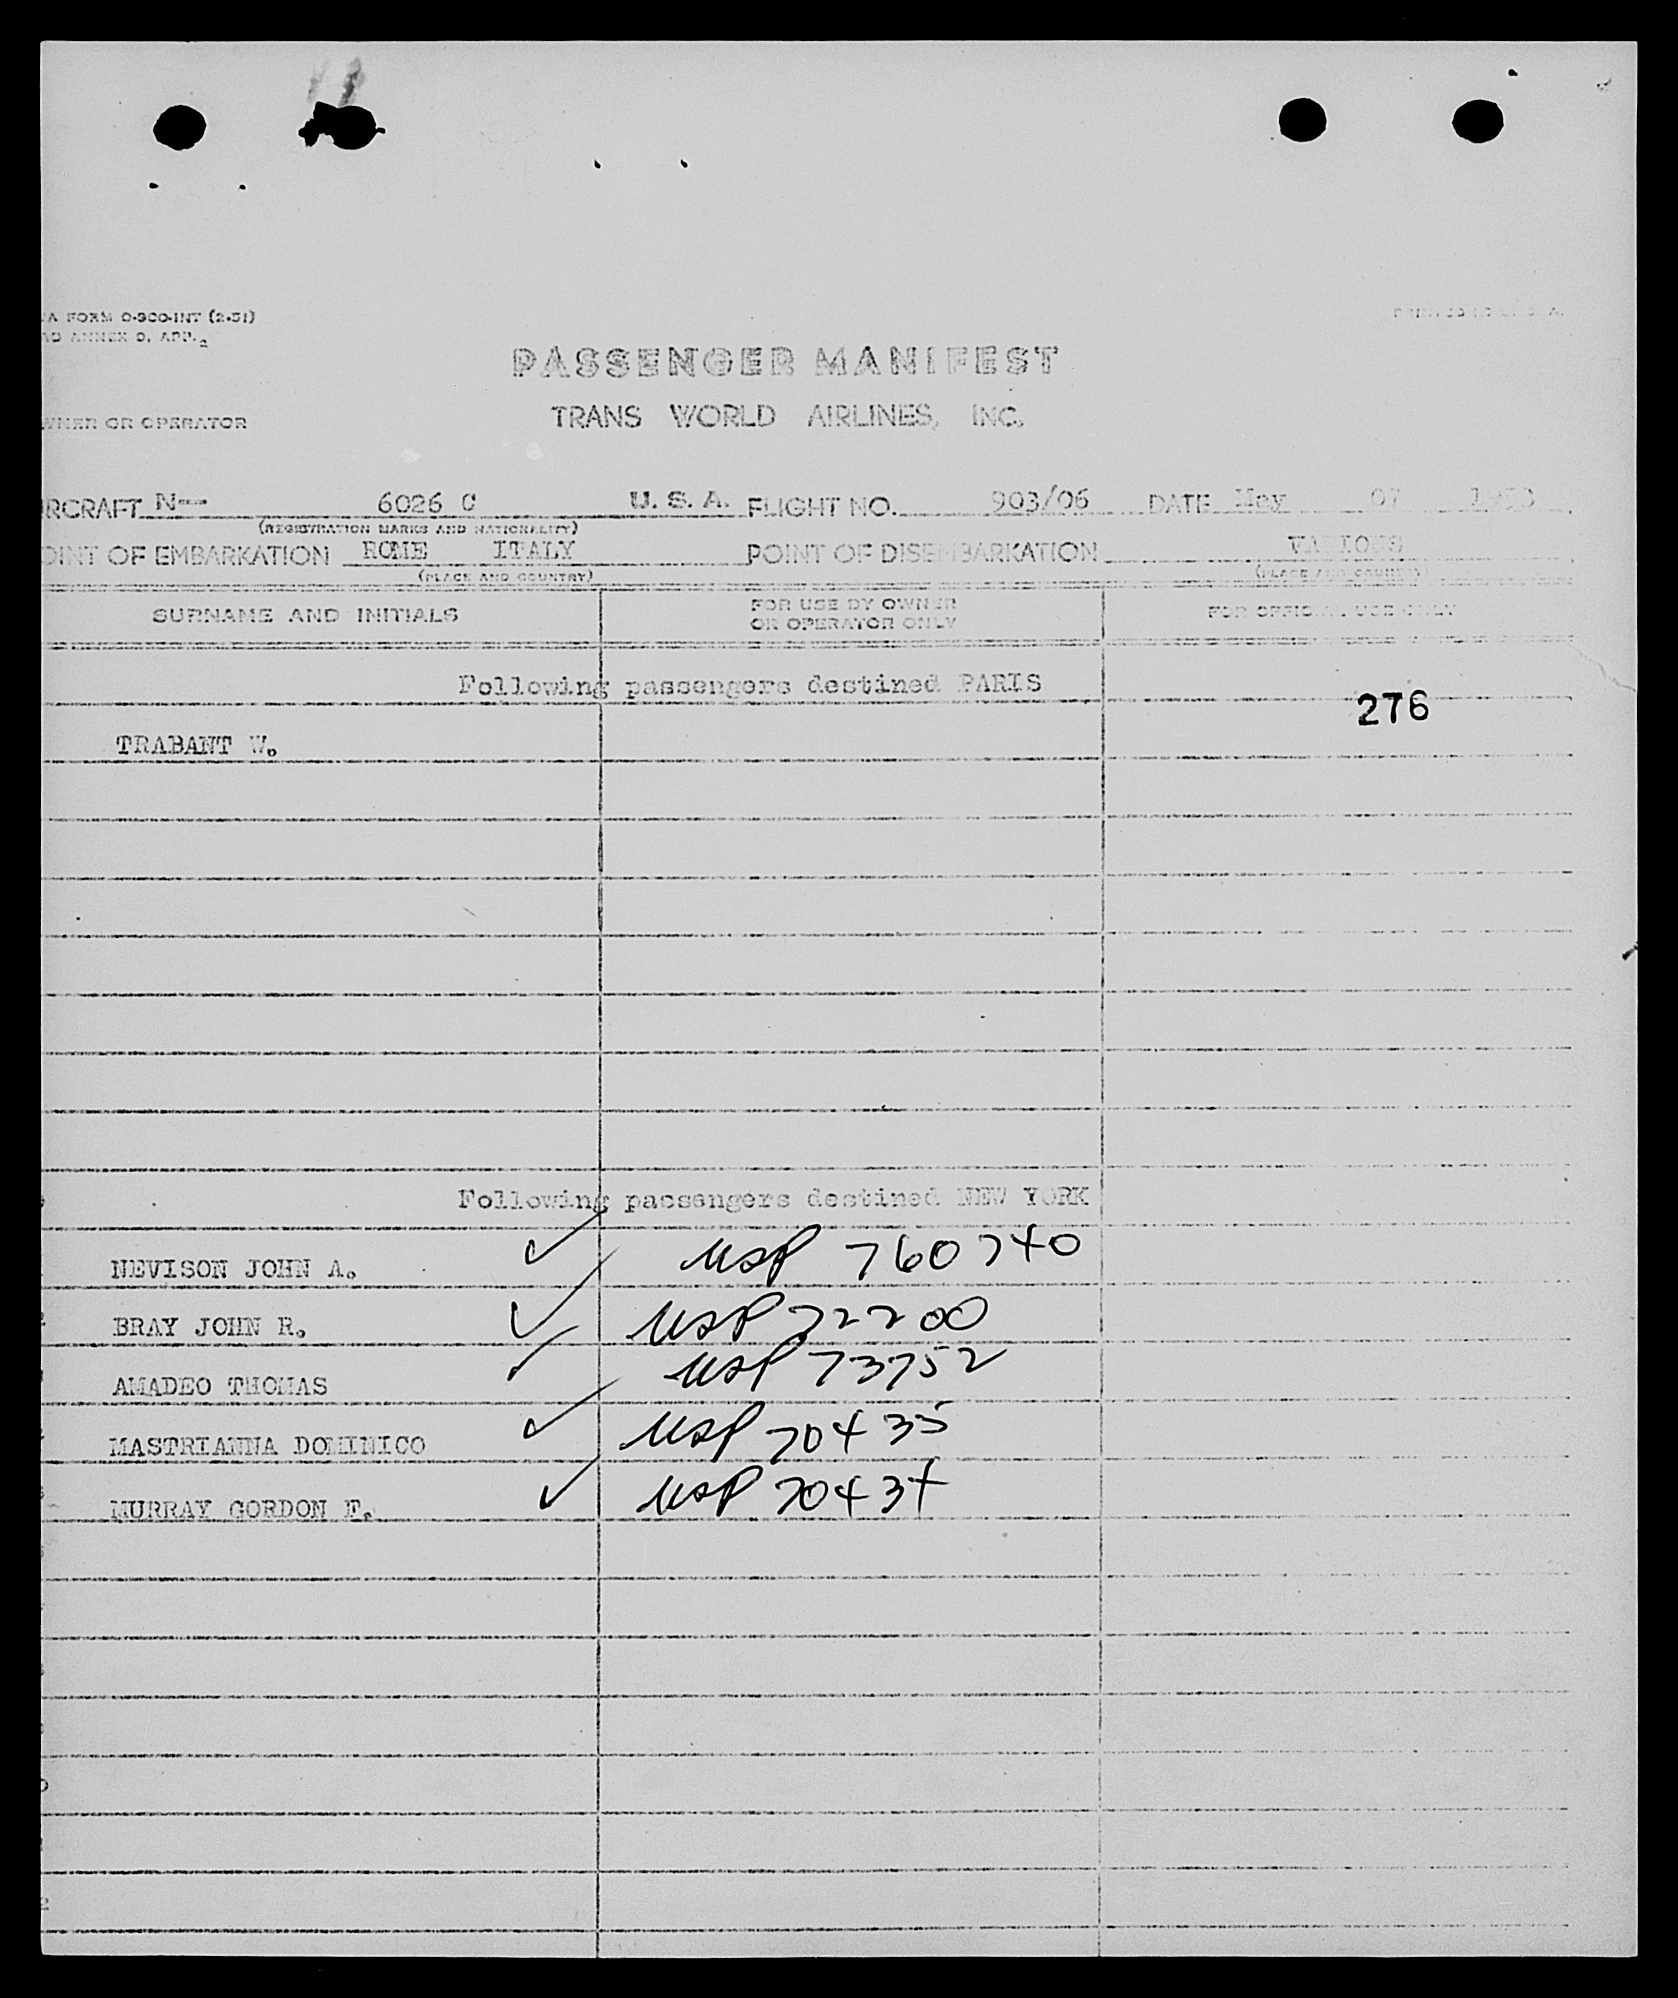 A FORM O-900-INT (2-51)
ANNEX 9, APP. 2
PASSENGER MANIFEST
OWNER OR OPERATOR TRANS WORLD AIRLINES, INC.
RCRAFT N-- 6026 C U. S. A. FLIGHT NO. 903/06 DATE May 07
(REGISTRATION MARKS AND NATIONALITY)
OINT OF EMBARKATION ROME ITALY POINT OF DISEMBARKATION VARIOUS
(PLACE AND COUNTRY) (PLACE AND COUNTRY)
SURNAME AND INITIALS FOR USE BY OWNER OR OPERATOR ONLY FOR OFFICIAL USE ONLY
Following passengers destined PARIS
276
TRABANT W.
Following passengers destined NEW YORK
NEVISON JOHN A. ✓ USP 760740
BRAY JOHN R. ✓ USP 72200
AMADEO THOMAS ✓ USP 73752
MASTRIANNA DOMINICO ✓ USP 70435
MURRAY GORDON F. ✓ USP 70434